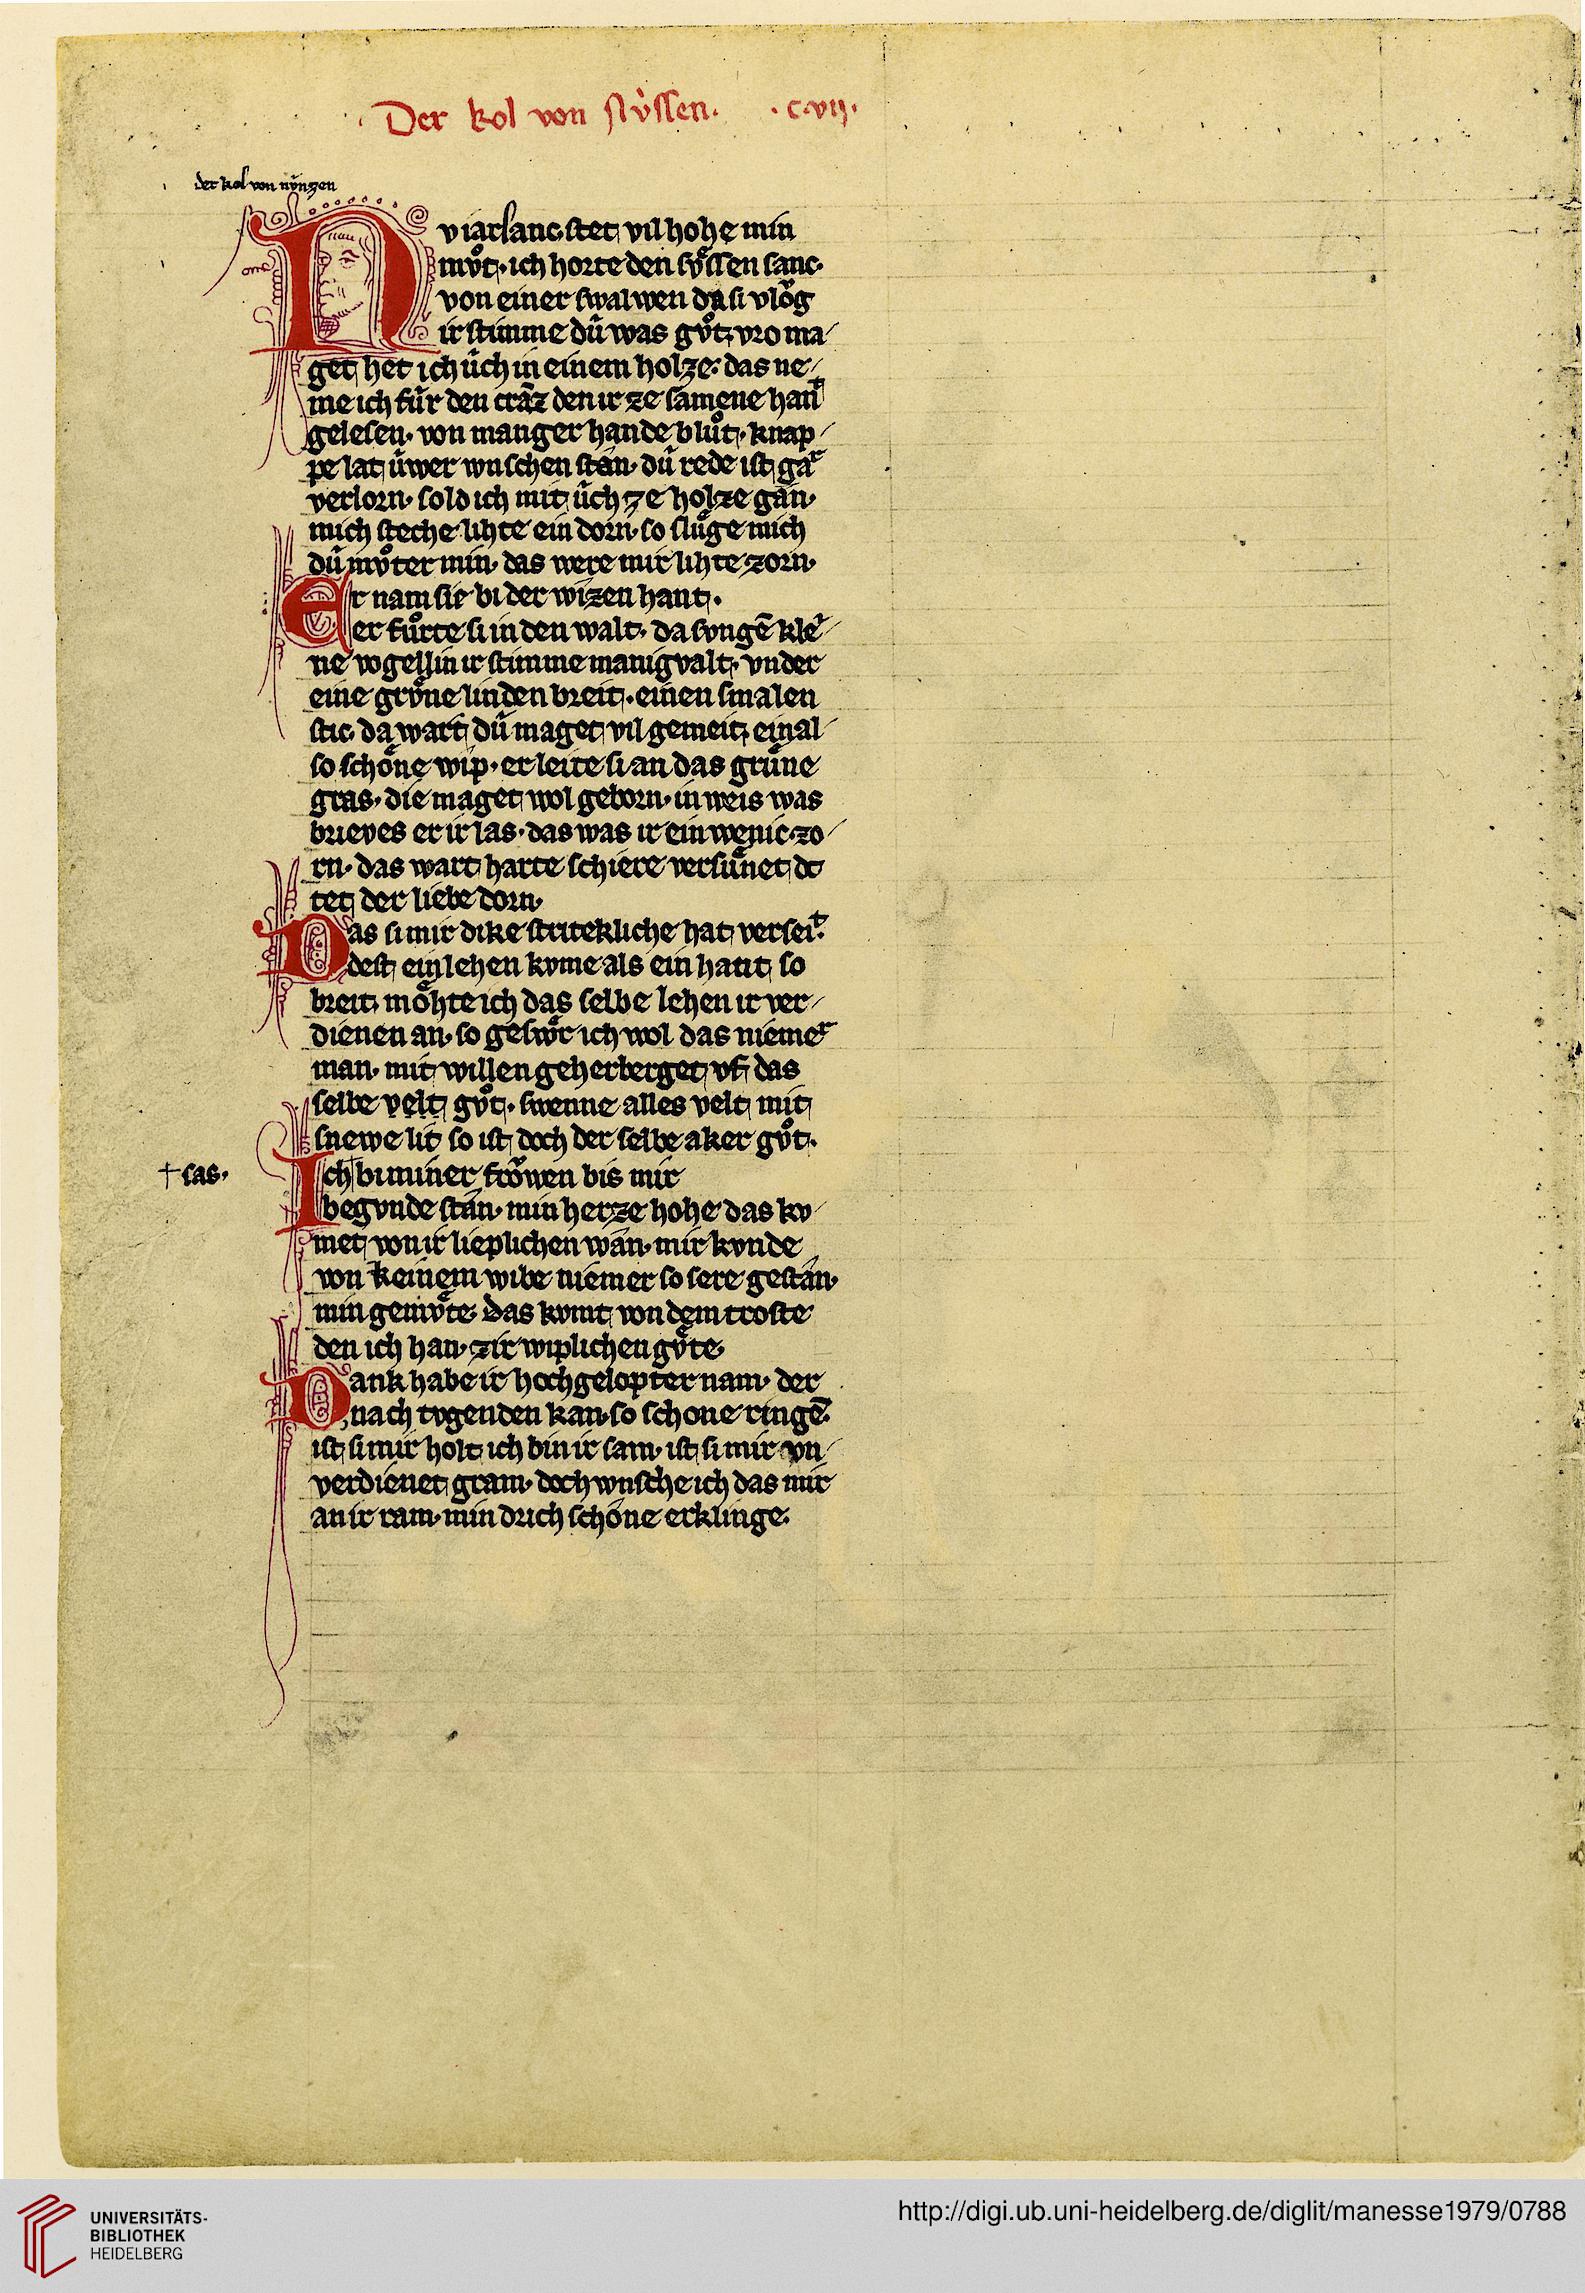 Der kol von nu̍ssen. .c.vij.
der kol von núnzen
Nv iarlanc stet vil hohe min
mvͦt. ich horte den sv̊ssen sanc.
von einer swalwen da si vlog
ir stimme dv̓ was gvͦt. vro ma
get het ich v̓ch in einem holze. das ne
me ich fv̓r den cranz den ir ze samene hant
gelesen. von manger hande blvͦt. knap
pe lat v̓wer wnschen stan. dv̓ rede ist gar
verlorn. sold ich mit v̓ch ze holze gan.
mich steche lihte ein dorn. so slv̓ge mich
dv̓ mvͦter min. das were mir lihte zorn.
Er nam sie bi der wizen hant.
er fvͦrte si in den walt. da svngē kleî
ne vogellin ir stimme manigvalt. vnder
eine grv̊ne linden breit. einen smalen
stic. da wart dv̓ maget vil gemeit. ein al
so schoͤne wip. er leite si an das grv̊ne
gras. die maget wol geborn. in weis was
brieves er ir las. das was ir ein wenic zo
rn. das wart harte schiere versv̊net dc
tet der liebe dorn.
Das si mir dike stritekliche hat verseit.
dest ein lehen kvme als ein hant so
breit. moͤhte ich das selbe lehen ir ver
dienen an. so geswv̊r ich wol das niemer
man. mit willen geherberget vf das
selbe velt gvͦt. swenne alles velt mit
snewe lit so ist doch der selbe aker gvͦt.
† sas.
Ich bi miner froͮwen bis mir
begvnde stan. min herze hohe das kv
met von ir lieplichen wan. mir kvnde
von keinem wibe niemer so sere gestan.
min gemv̊te. das kvmt von dem troste
den ich han. zir wiplichen gv̊te.
Dank habe ir hochgelopter nam. der
nach tvgenden kan. so schone ringē.
ist si mir holt ich bin ir sam. ist si mir vn
verdienet gram. doch wnsche ich das mir
an ir ram. min drich schone erklinge.
UNIVERSITÄTS-
BIBLIOTHEK
HEIDELBERG
http://digi.ub.uni-heidelberg.de/diglit/manesse1979/0788